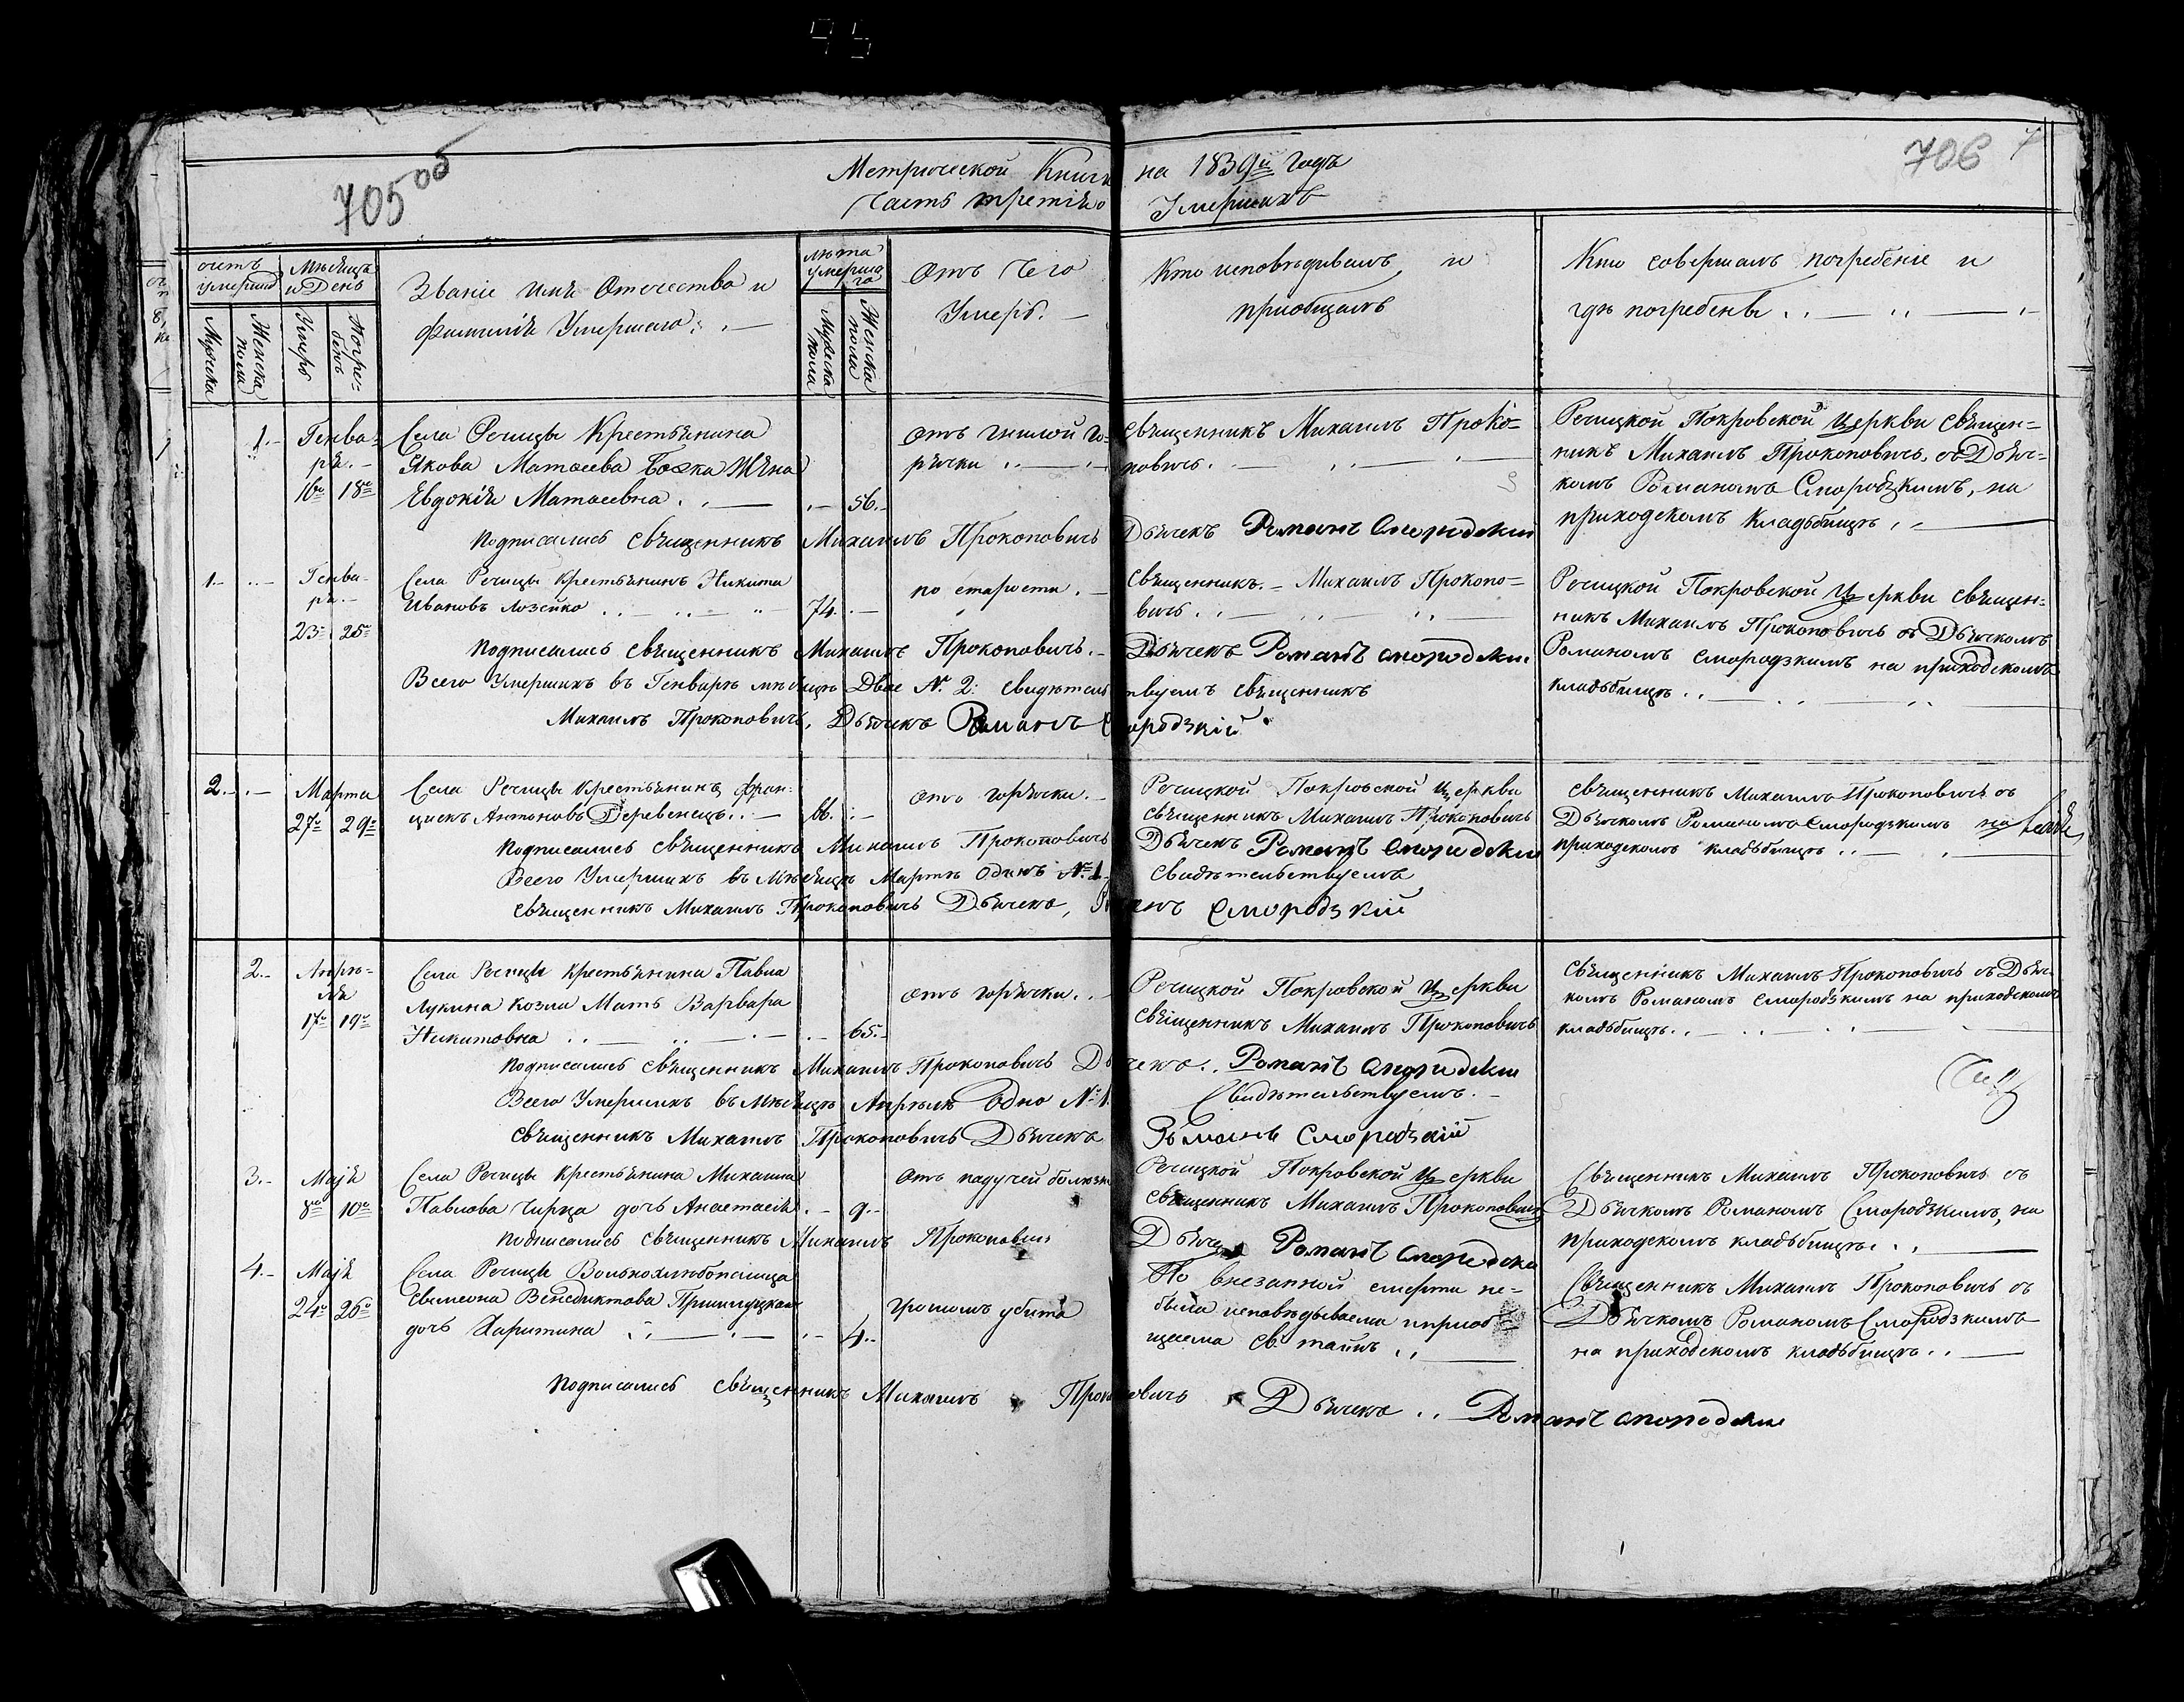 705 об
706
7
Метрической Книги на 1839й Годъ
Часть третія о Умершихъ
счетъ умершихъ
Мѣсяцъ и День
Званіе имя Отечество и
фамилія Умершаго
лѣта умершаго
отъ чего
Умеръ.
Кто исповѣдывалъ и
приобщалъ
Кто совершалъ погребеніе и
гдѣ погребены
Мужеска
Женска пола
Умеръ
Погребенъ
Мужеска пола
Женска пола
1. Генва-
ря
16го 18го
Села Речицы Крестьянина
Якова Матѳеева Божка Жена
Евдокія Матѳеевна 56.
отъ гнилой го-
рячки
священникъ Михаилъ Проко-
повичъ.
Речицкой Покровской Церкви священ-
никъ Михаилъ Прокоповичъ, съ Дьяч-
комъ Романомъ Смородзкимъ, на
приходскомъ Кладьбищѣ
Подписались священникъ Михаилъ Прокоповичъ Дьячекъ Романъ Смородзкій
1. Генва-
ря
23го 25го
Села Речицы Крестьянинъ Никита
Ивановъ Лозейко 74.
по старости.
священникъ Михаилъ Прокопо-
вичъ.
Речицкой Покровской Церкви священ-
никъ Михаилъ Прокоповичъ съ Дьячкомъ
Романомъ Смородзкимъ на приходскомъ
кладьбищѣ
Подписались священникъ Михаилъ Прокоповичъ. Дьячекъ Романъ Смородзкій
Всего Умершихъ въ Генварѣ мѣсяцѣ Двое №. 2: свидѣтельствуемъ священникъ
Михаилъ Прокоповичъ, Дьячекъ Романъ Смородзкій
2. Марта
27го 29го
Села Речицы Крестьянинъ Фран-
цискъ Антоновъ Деревенецъ 66.
отъ горячки.
Речицкой Покровской Церкви
священникъ Михаилъ Прокоповичъ
священникъ Михаилъ Прокоповичъ съ
Дьячкомъ Романомъ Смородзкимъ на
приходскомъ кладьбищѣ
Подписались священникъ Михаилъ Прокоповичъ Дьячекъ Романъ Смородзкій
Всего Умершихъ въ Мѣсяцѣ Мартѣ Одинъ №. 1. свидѣтельствуемъ
священникъ Михаилъ Прокоповичъ Дьячекъ, Романъ Смородзкій
2. Апрѣ-
ля
17го 19го
Села Речицы крестьянина Павла
Лукина Козла Мать Варвара
Никитовна 65.
отъ горячки.
Речицкой Покровской Церкви
священникъ Михаилъ Прокоповичъ
священникъ Михаилъ Прокоповичъ съ Дьяч-
комъ Романомъ Смородзкимъ на приходскомъ
кладьбищѣ.
Подписались священникъ Михаилъ Прокоповичъ Дьячекъ. Романъ Смородзкій
Всего Умершихъ въ Мѣсяцѣ Апрѣлѣ Одно №. 1. свидѣтельствуемъ.
священникъ Михаилъ Прокоповичъ Дьячекъ Романъ Смородзкій
3. Маія
8го 10го
Села Речицы крестьянина Михаила
Павлова Чирца дочь Анастасія 9.
отъ падучей болѣзни
Речицкой Покровской Церкви
священникъ Михаилъ Прокоповичъ
Священникъ Михаилъ Прокоповичъ съ
Дьячкомъ Романомъ Смородзкимъ, на
приходскомъ кладьбищѣ.
Подписались священникъ Михаилъ Прокоповичъ Дьячекъ Романъ Смородзкій
4. Маія
24го 26го
Села Речицы Вольнохлѣбопашца
Симеона Венедиктова
дочь Харитина 4.
громомъ убита
По внезапной смерти не-
была исповѣдываема и приоб-
щаема св. таинъ
Священникъ Михаилъ Прокоповичъ съ
Дьячкомъ Романомъ Смородзкимъ
на приходскомъ кладьбищѣ.
Подписались священникъ Михаилъ Прокоповичъ Дьячекъ Романъ Смородзкій